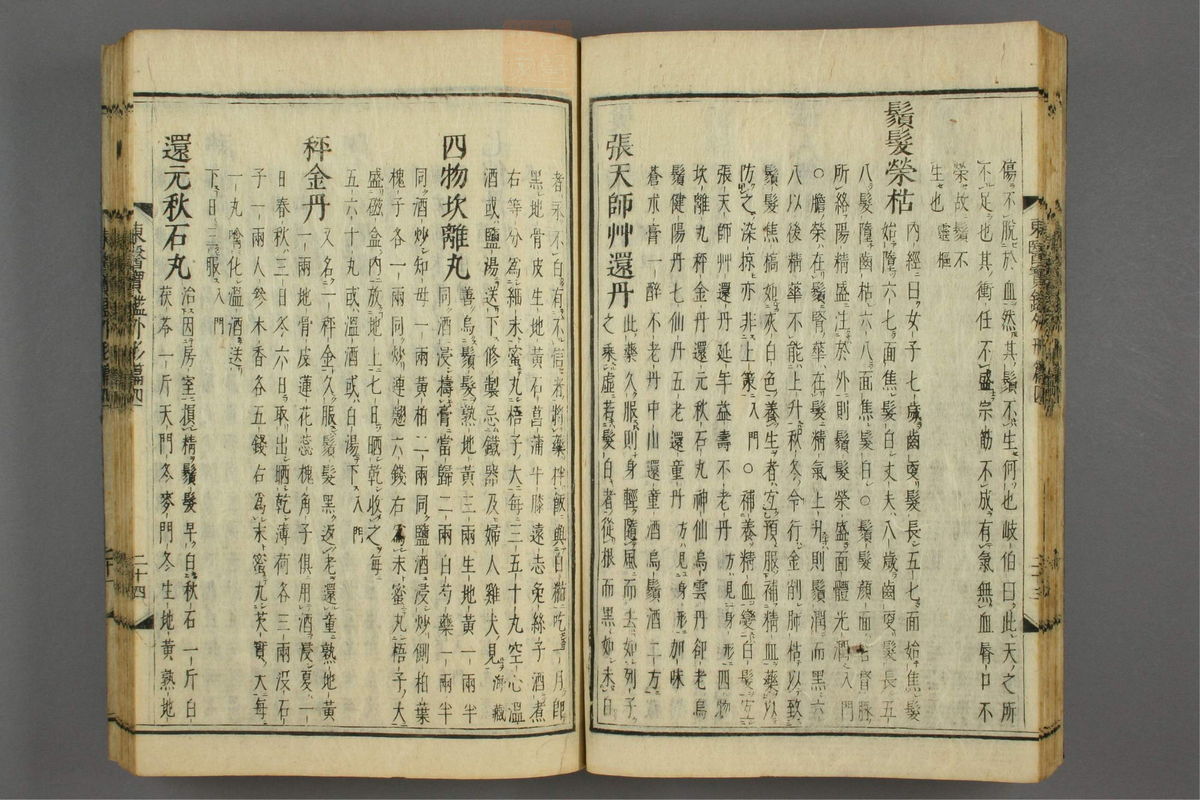 傷不脫於血然其鬚不生何也岐伯曰此天之所
不足也其衝任不盛宗筋不成有氣無血唇口不
榮故鬚不
生也靈樞
鬚髮榮枯
內經曰女子七歲齒更髮長五七面始焦髮
始墮六七面焦髮白丈夫八歲齒更髮長五
八髮墮齒枯六八面焦髮白○鬚髮顏面皆督脉
所絡陽精盛注於外則鬚髮榮盛面體光潤入門
○膽榮在鬚腎華在髮精氣上升則鬚潤而黑六
八以後精華不能上升秋冬令行金削肺枯以致
鬚髮焦槁如灰白色養生者宜預服補精血藥以
防之染掠亦非上策入門○補養精血變白髮宜
張天師艸還丹延年益壽不老丹方見身形四物
坎離丸秤金丹還元秋石丸神仙烏雲丹却老烏
鬚健陽丹七仙丹五老還童丹方見身形加味
蒼朮膏一醉不老丹中山還童酒烏鬚酒二方
張天師艸還丹
此藥久服則身輕隨風而去如列子
之乘虛若髮白者從根而黑如未白
者不有不信者將藥拌飯與白猫吃一月卽
黑地骨皮生地黃石菖蒲牛膝遠志兔絲子酒煮
右等分爲細末蜜丸梧子大每三五十丸空心溫
酒或鹽湯送下修製忌鐵器及婦人雞犬見海藏
四物坎離丸
善烏鬚髮熟地黃三兩生地黃一兩半
同酒浸擣膏當歸二兩白芍藥一兩半
同酒炒知母一兩黃柏二兩同鹽酒浸炒側柏葉
槐子各一兩同炒連翹六錢右爲末蜜丸梧子大
盛磁盒內放地上七日晒乾收之每
五六十丸或溫酒或白湯下入門
秤金丹
又名一秤金久服鬚髮黑返老還童熟地黃
一兩地骨皮蓮花蕊槐角子俱用酒浸夏一
日春秋三日冬六日取出晒乾薄荷各三兩沒石
子一兩人參木香各五錢右爲末蜜丸芡實大每
一丸噙化溫酒送
下日三服入門
還元秋石丸
治因房室損精鬚髮早白秋石一斤白
茯苓一斤天門冬麥門冬生地黃熟地
東醫寶鑑外形篇四
二十四